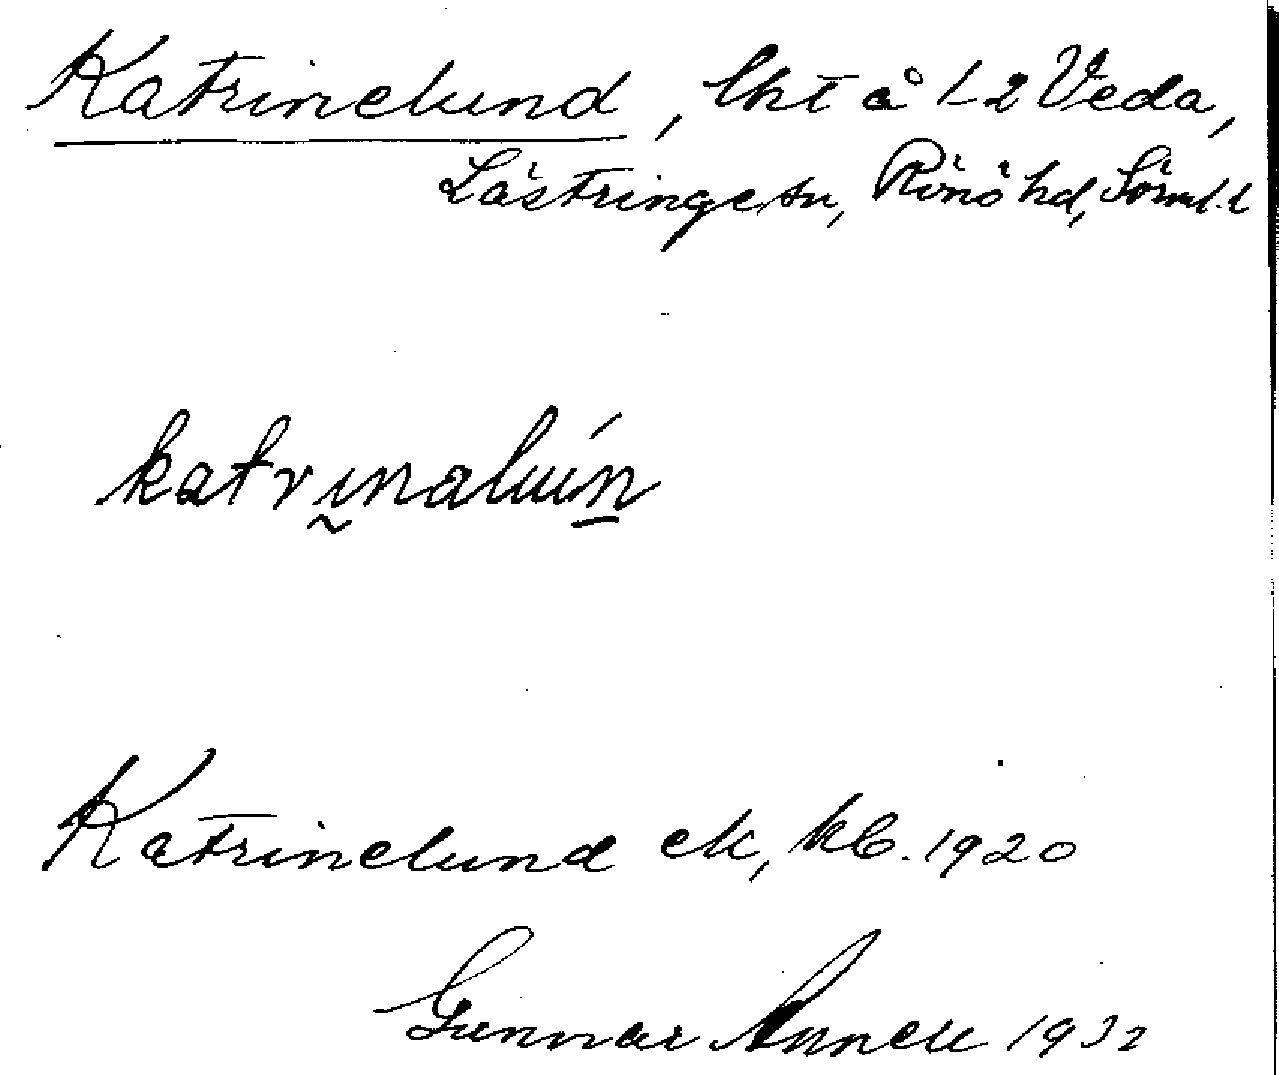 Katrinelund, lht å 1-2 Veda,
Lästringe sn, Rönö hd, Söml. l
katrinalún
Katrinelund ek, kb. 1920
Gunnar 1932